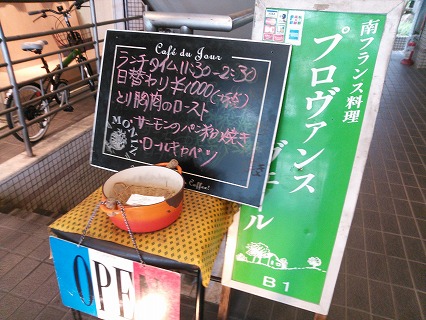 Café du Jour
ランチタイム 11:30-2:30
日替わり ¥1000(税込)
とり胸肉のロースト
サーモンのパン粉焼き
ロールキャベツ
Coffee!
OPEN
南フランス料理
プロヴァンス
ヴェール
B1